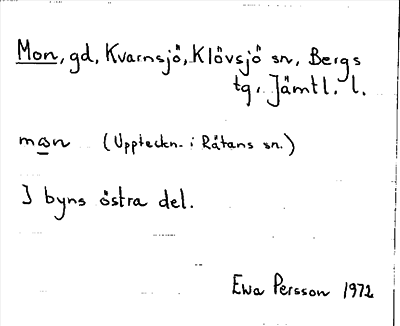 Mon, gd, Kvarnsjö, Klövsjö sn, Bergs
tg, Jämtl. l.
mɷn (Uppteckn. i Rätans sn.)
I byns östra del.
Ewa Persson 1972